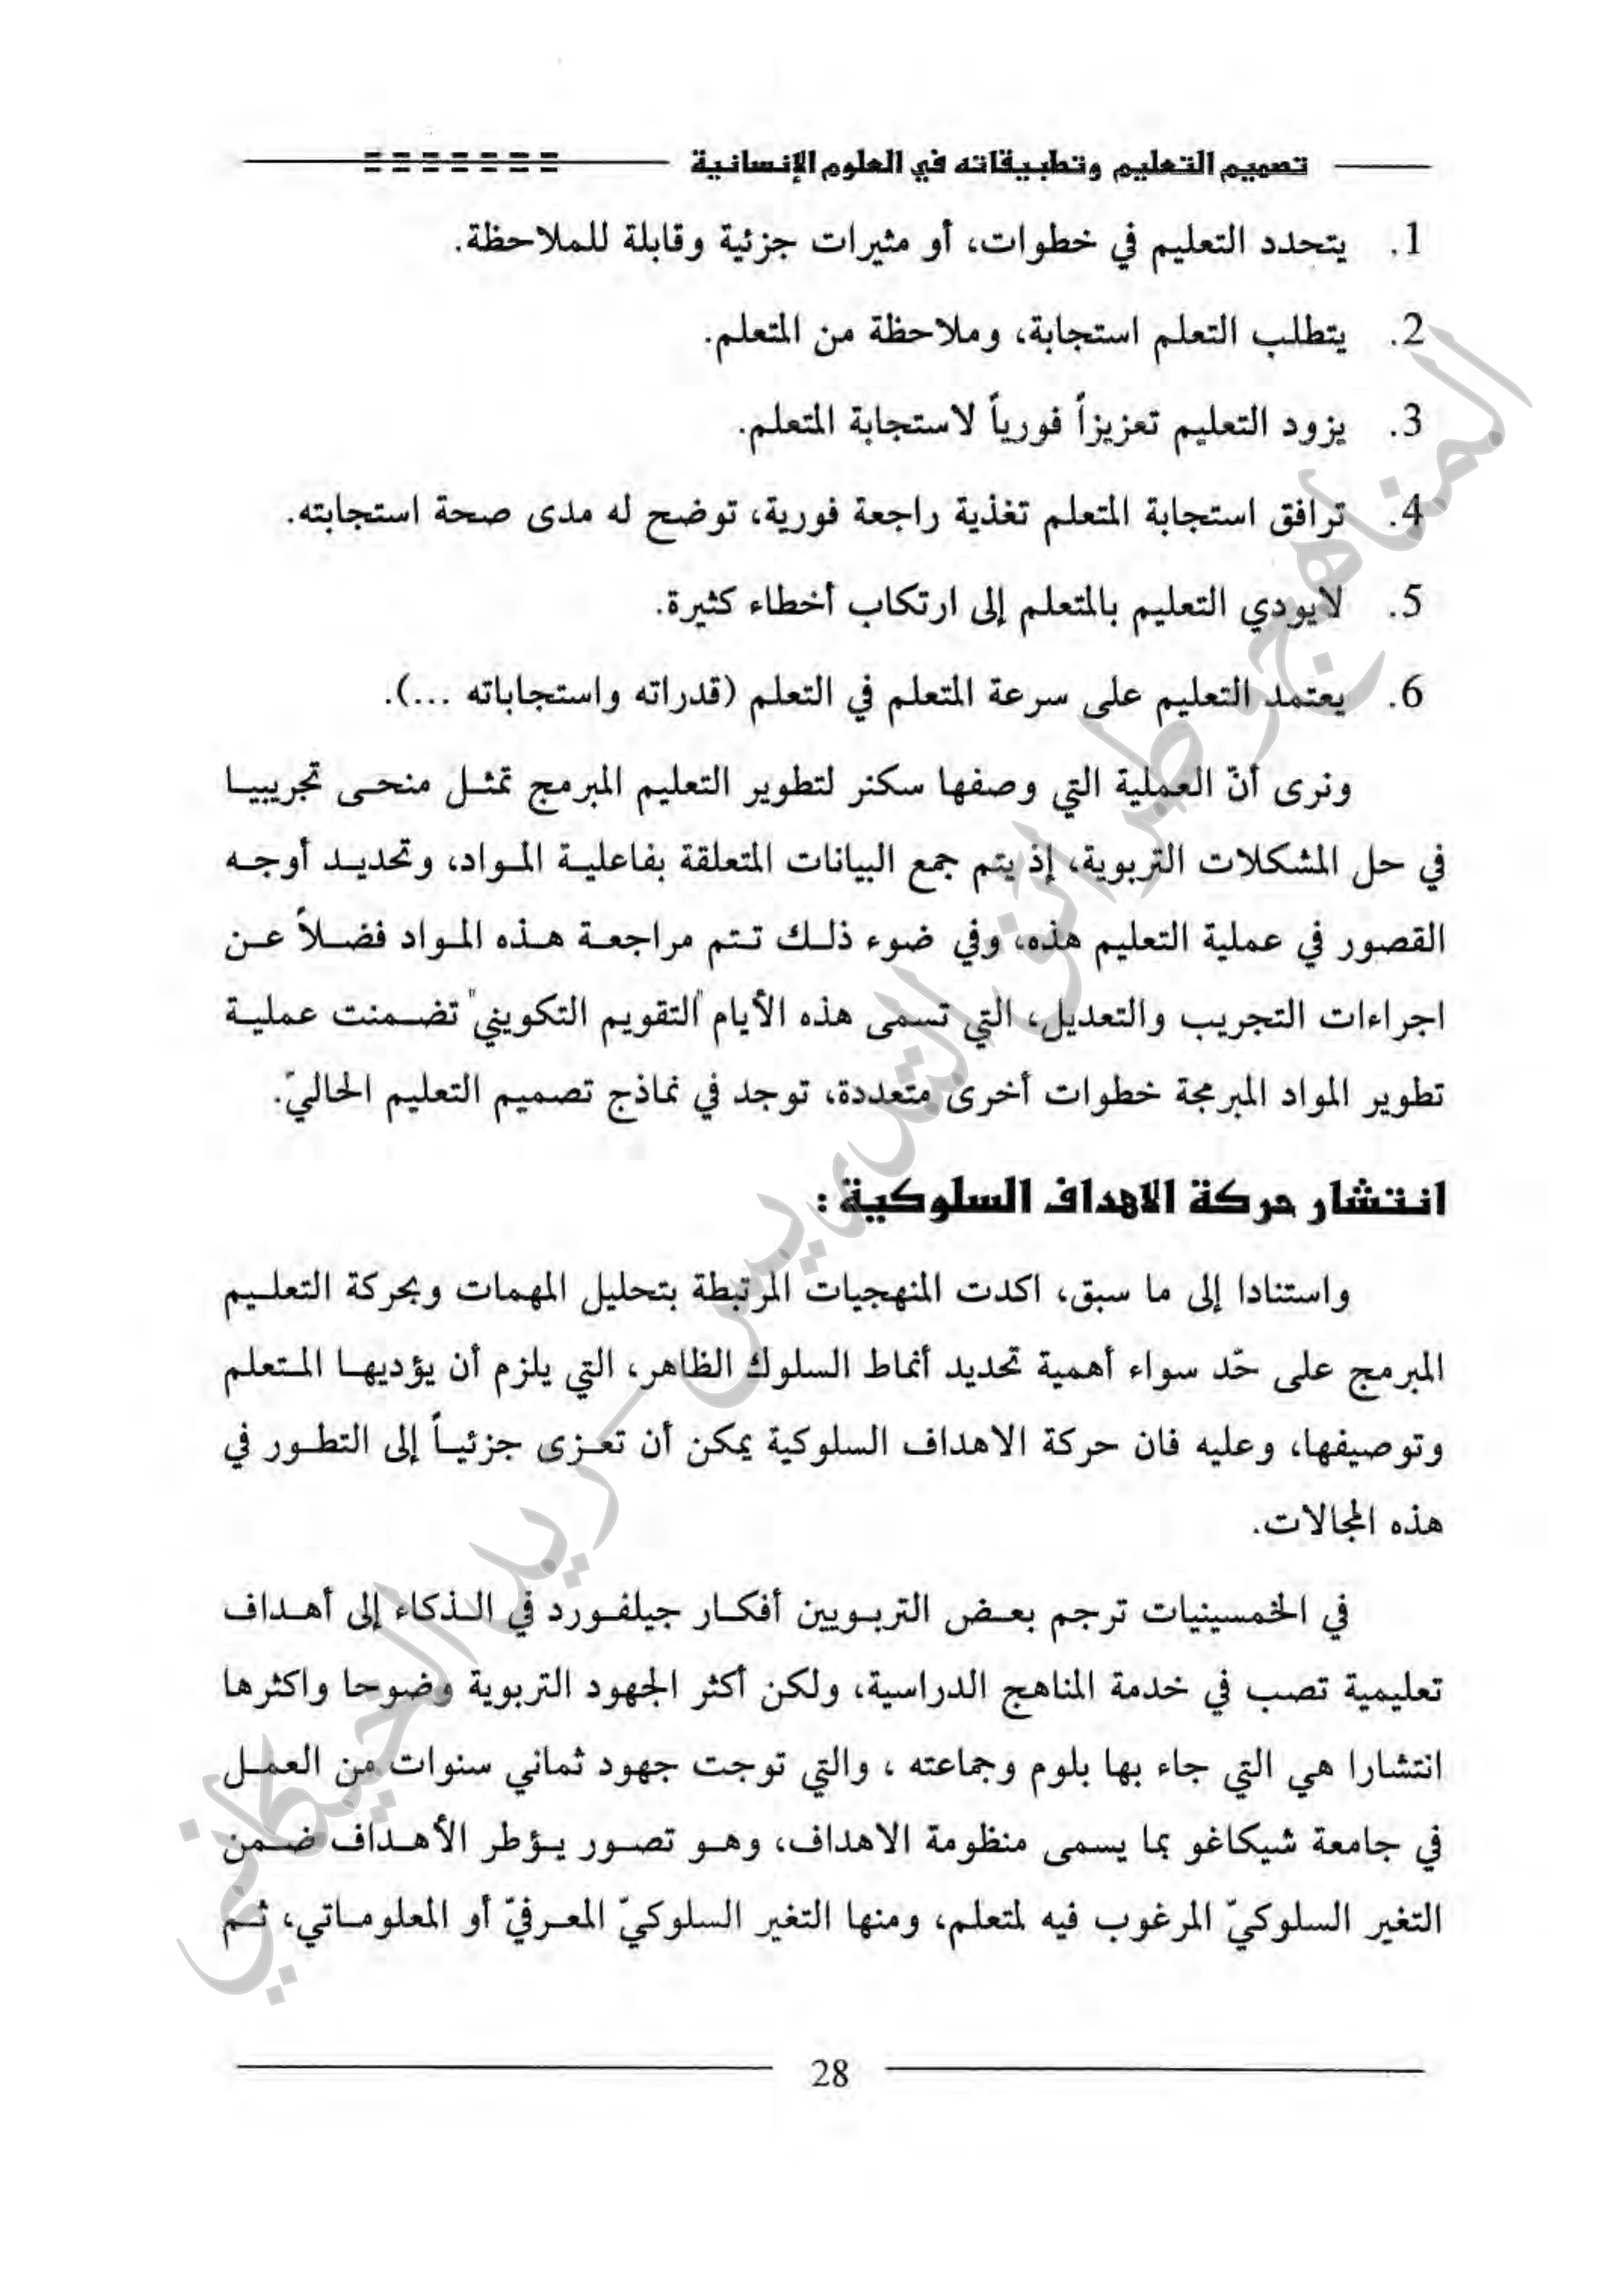 تصميم التعليم وتطبيقاته في العلوم الإنسانية
1. يتحدد التعليم في خطوات، أو مثيرات جزئية وقابلة للملاحظة.
2. يتطلب التعلم استجابة، وملاحظة من المتعلم.
3. يزود التعليم تعزيزاً فورياً لاستجابة المتعلم.
4. ترافق استجابة المتعلم تغذية راجعة فورية، توضح له مدى صحة استجابته.
5. لايودي التعليم بالمتعلم إلى ارتكاب أخطاء كثيرة.
6. يعتمد التعليم على سرعة المتعلم في التعلم (قدراته واستجاباته ...).
ونرى أنّ العملية التي وصفها سكنر لتطوير التعليم المبرمج تمثل منحى تجريبيا
في حل المشكلات التربوية، إذ يتم جمع البيانات المتعلقة بفاعلية المواد، وتحديد أوجه
القصور في عملية التعليم هذه، وفي ضوء ذلك تتم مراجعة هذه المواد فضلاً عن
اجراءات التجريب والتعديل، التي تسمى هذه الأيام "التقويم التكويني" تضمنت عملية
تطوير المواد المبرمجة خطوات أخرى متعددة، توجد في نماذج تصميم التعليم الحاليّ.
انتشار حركة الاهداف السلوكية :
واستنادا إلى ما سبق، اكدت المنهجيات المرتبطة بتحليل المهمات وبحركة التعليم
المبرمج على حّد سواء أهمية تحديد أنماط السلوك الظاهر، التي يلزم أن يؤديها المتعلم
وتوصيفها، وعليه فان حركة الاهداف السلوكية يمكن أن تعزى جزئياً إلى التطور في
هذه المجالات.
في الخمسينيات ترجم بعض التربويين أفكار جيلفورد في الذكاء إلى أهداف
تعليمية تصب في خدمة المناهج الدراسية، ولكن أكثر الجهود التربوية وضوحا واكثرها
انتشارا هي التي جاء بها بلوم وجماعته ، والتي توجت جهود ثماني سنوات من العمل
في جامعة شيكاغو بما يسمى منظومة الاهداف، وهو تصور يؤطر الأهداف ضمن
التغير السلوكيّ المرغوب فيه لمتعلم، ومنها التغير السلوكيّ المعرفيّ أو المعلوماتي، ثم
28